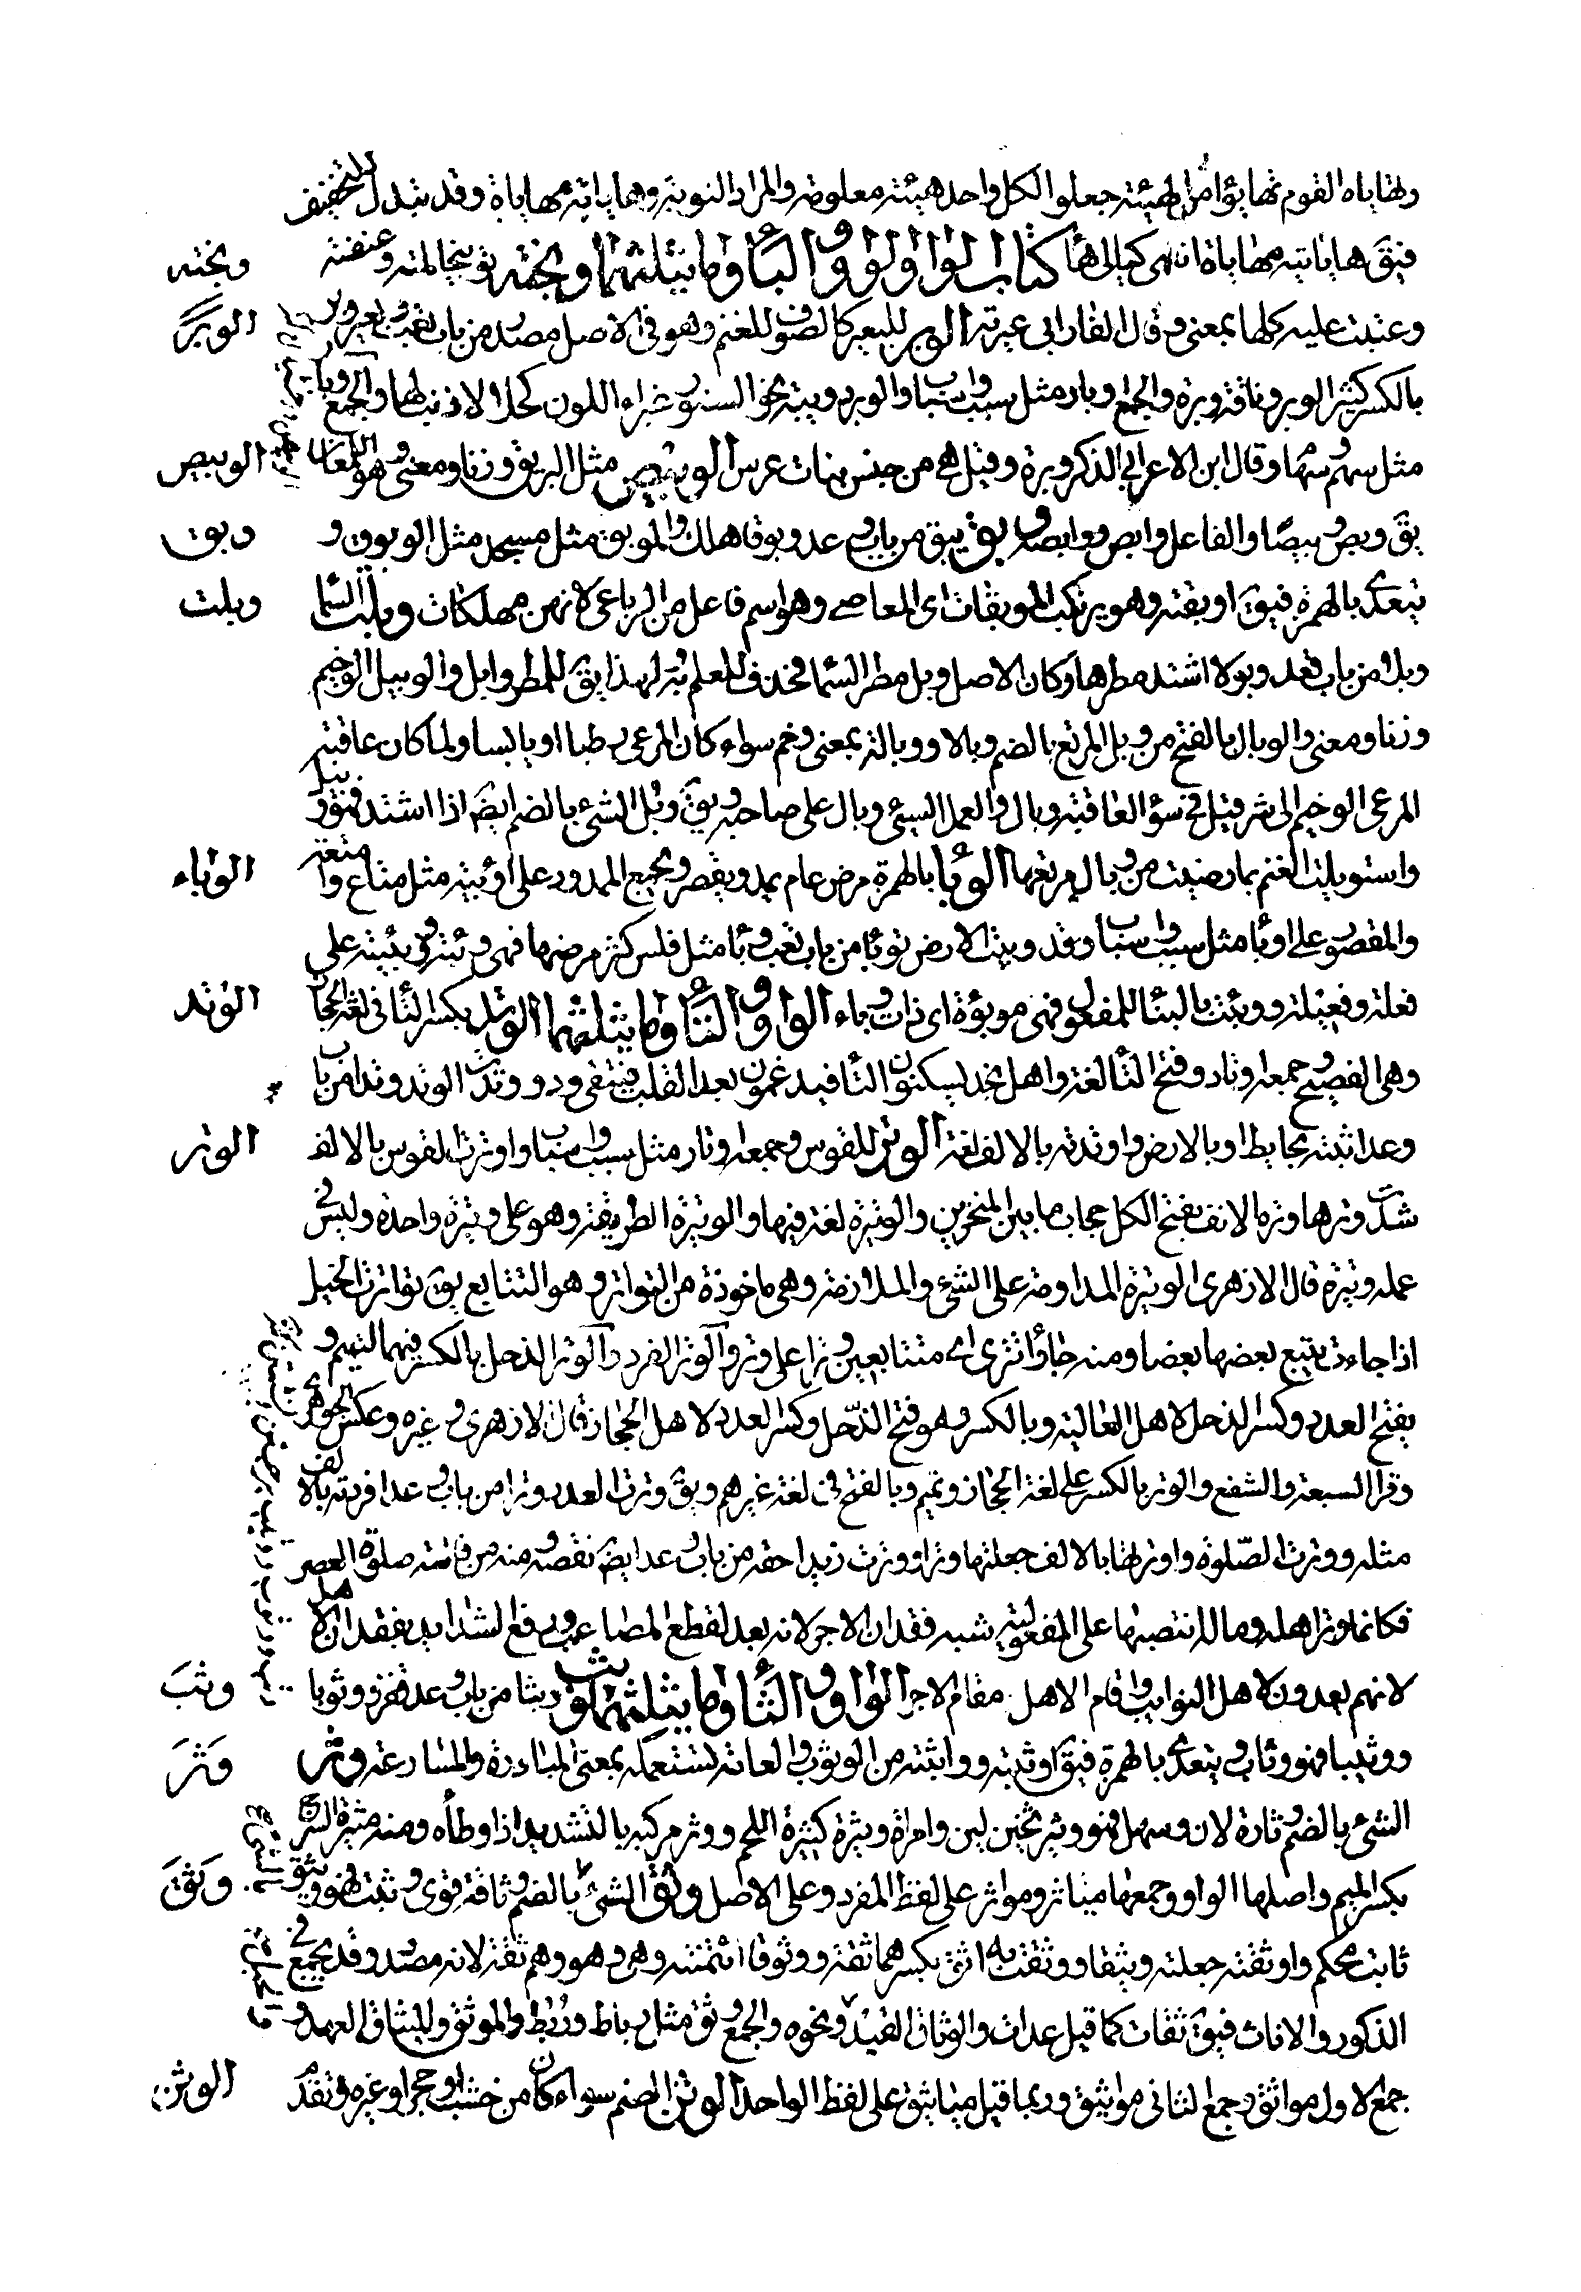 وتهاياه القوم تهايؤا من الهيئة جعلوا لكل واحد هيئة معلومة والمراد النوبة وهاياته مهاياة وقد تبدل للتخفيف
فيق هاياته مهاياة انتهى كتاب الهاء كتاب الواو الواو والباء وما يثلثهما وبخته توبيخا لمته وعنفته
وبخته
وعتبت عليه كلها بمعنى وقال الفارابي عيرته الوبر للبعير كالصوف للغنم وهو في الاصل مصدر من باب تعب وبعير وبر
الوبر
بالكسر كثير الوبر وناقة وبرة والجمع اوبار مثل سبب واسباب والوبر دويبة نحو السنور غبراء اللون كحلا لا ذنب لها والجمع وبار
مثل سهم وسهام وقال ابن الاعرابي الذكر وبر والانثى وبرة وقيل هي من جنس بنات عرس الوبيص مثل البريق وزنا ومعنى وهو اللمعان
الوبيص
يق وبص وبيصا والفاعل وابص ووابصة وبق يبق من باب وعد وبوقا هلك والموبق مثل مسجد مثل الوبوق و
وبق
يتعدى بالهمزة فيق اوبقته وهو يرتكب الموبقات اى المعاصي وهو اسم فاعل من الرباعى لانهن مهلكات وبلت السماء
وبلت
وبلا من باب وعد وبولا اشتد مطرها وكان الاصل وبل مطر السماء فحذف للعلم به ولهذا يق للمطر وابل والوبيل الوخيم
وزنا ومعنى والوبال بالفتح من وبل المرتع بالضم وبالا ووبالة بمعنى وخم سواء كان المرعى رطبا او يابسا ولما كان عاقبة
المرعى الوخيم الى شر قيل في سوء العاقبة وبال والعمل السيئ وبال على صاحبه ويق وبل الشئ بالضم ايضا اذا اشتد فهو وبيل
واستوبلت الغنم تمارضت من وبال مرتعها الوباء بالهمزة مرض عام يمد ويقصر ويجمع الممدود على اوبئة مثل متاع وامتعة
الوباء
والمقصور على اوباء مثل سبب واسباب وقد وبئت الارض توبأ من باب تعب وبأ مثل فلس كثر مرضها فهى وبئة ووبيئة على
فعلة وفعيلة ووبئت بالبناء للمفعول فهى موبوءة اى ذات وباء الواو والتاء وما يثلثهما الوتد بكسر التاء فى لغة الحجاز
الوتد
وهى الفصحى وجمعه اوتاد وفتح التاء لغة واهل نجد يسكنون التاء فيدغمون بعد القلب فيبقى ود ووتدت الوتد وتدا من باب
وعد اثبته بحايط او بالارض واوتدته بالالف لغة الوتر للقوس وجمعه اوتار مثل سبب واسباب واوترت القوس بالالف
الوتر
شددت وترها وترة الانف بفتح الكل حجاب ما بين المنخرين والوتيرة لغة فيها والوتيرة الطريقة وهو على وتيرة واحدة وليس فى
عمله وتيرة قال الازهرى الوتيرة المداومة على الشئ والملازمة وهى ماخوذة من التواتر وهو التتابع يق تواترت الخيل
اذا جاءت يتبع بعضها بعضا ومنه جاؤا تترى اى متتابعين وترا على وتر والوتر الفرد والوتر الذحل بالكسر فيهما لتميم و
بفتح العدد وكسر الذحل لاهل العالية وبالكسر وهو فتح الذحل وكسر العدد لاهل الحجاز قال الازهرى وغيره وعكس الجوهرى
وقرا السبعة والشفع والوتر بالكسر على لغة الحجاز وتميم وبالفتح فى لغة غيرهم ويق وترت العدد وترا من باب وعد افردته بالالف
مثله ووترت الصلوة واوترتها بالالف جعلتها وترا ووترت زيدا حقه من باب وعد ايضا نقصه ومنه من فاتته صلوة العصر
فكانما وتر اهله وماله بنصبهما على المفعولية شبه فقدان الاجر لانه يعد لقطع المصاعب ودفع الشدايد بفقدان الاهل
لانهم يعدون لاهل النوايب واقام الاهل مقام الاجر الواو والثاء وما يثلثهما وثب يثب وثبا من باب وعد قفز ووثوبا
وثب
ووثيبا فهو وثاب ويتعدى بالهمزة فيق اوثبته وواثبته من الوثوب والعامة تستعمله بمعنى المبادرة والمسارعة وثر
وثر
الشئ بالضم وثارة لان وسهل فهو وثير ثخين لين وامراة وثيرة كثيرة اللحم ووثر مركبه بالتشديد اذا وطأه ومنه ميثرة السرج
بكسر الميم واصلها الواو وجمعها مياثر ومواثر على لفظ المفرد وعلى الاصل وثق الشئ بالضم وثاقة قوى وثبت فهو وثيق
وثق
ثابت محكم واوثقته جعلته وثيقا ووثقت به اثق بكسرهما ثقة ووثوقا ائتمنته وهى وهو وهم ثقة لانه مصدر وقد يجمع فى
الذكور والاناث فيق ثقات كما قيل عدات والوثاق القيد ونحوه والجمع وثق مثل رباط وربط والموثق والميثاق العهد و
جمع الاول مواثق وجمع الثانى مواثيق وربما قيل مياثيق على لفظ الواحد الوثن الصنم سواء كان من خشب او حجر او غيره وتقدم
الوثن